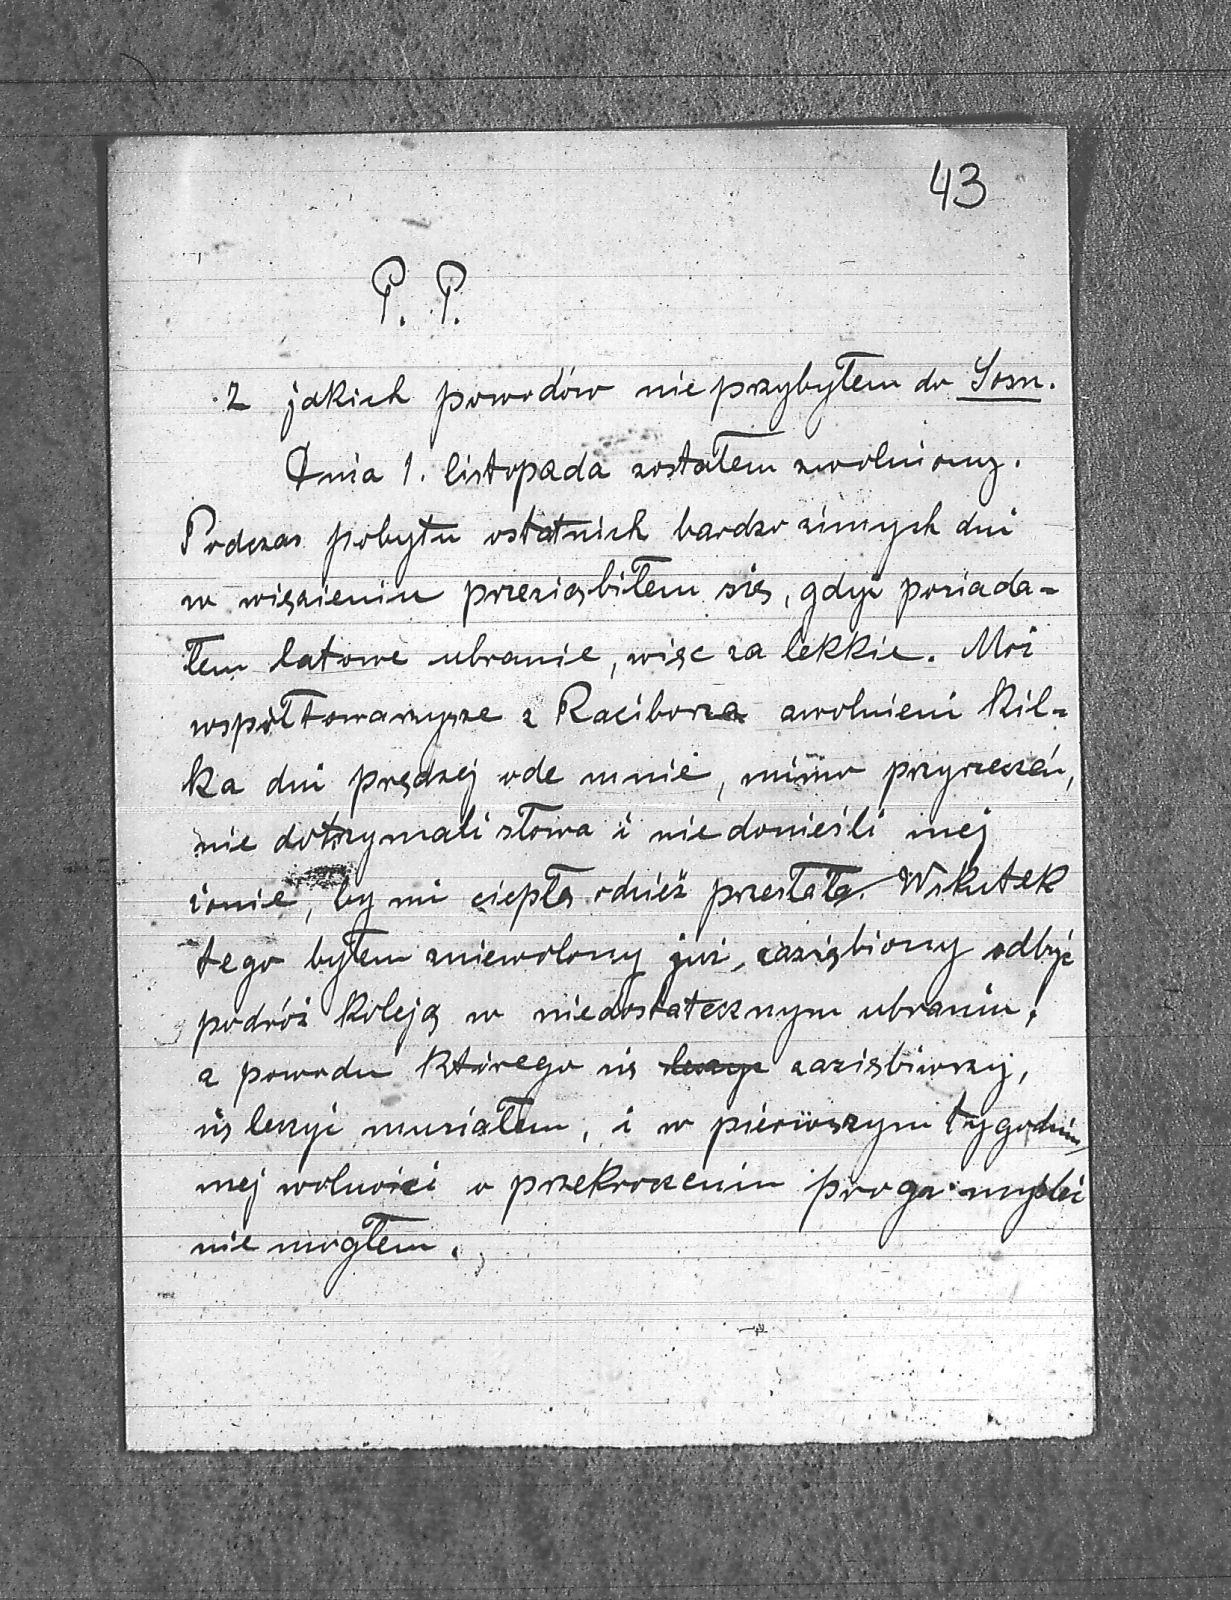 43
P. P.
Z jakich powodów nie przybyłem do Sosn.
Dnia 1. listopada zostałem zwolniony.
Podczas pobytu ostatnich bardzo zimnych dni
w więzieniu przeziębiłem się, gdyż posiada-
łem latowe ubranie, więc za lekkie. Moi
współtowarzysze z Raciborza zwolnieni kil-
ka dni prędzej ode mnie, mimo przyrzeczeń,
nie dotrzymali słowa i nie donieśli mej
żonie, by mi ciepłą odzież przesłała. Wskutek
tego byłem zniewolony już zaziębiony odbyć
podróż koleją w niedostatecznym ubraniu,
z powodu którego się zaziębiwszy,
się leczyć musiałem, i w pierwszym tygodniu
mej wolności o przekroczeniu progu myśleć
nie mogłem.